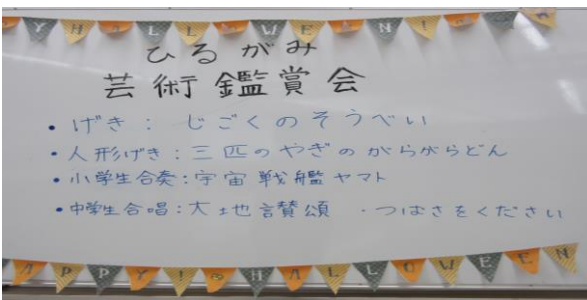 HALLOWEEN!
ひるがみ
芸術鑑賞会
• げき：じごくのそうべい
• 人形げき：三匹のやぎのがらがらどん
• 小学生合奏：宇宙戦艦ヤマト
• 中学生合唱：大地讃頌 ・つばさをください
APPY! HALLOWEEN